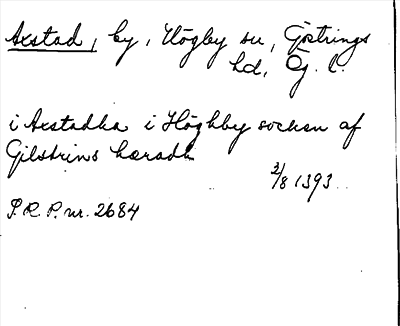 Axstad, by, Högby sn, Göstrings
hd, Ög. l.
i Axstadha i Höghby sochen af
Gilstrins hæradh
2/8 1393.
S.R.P. nr. 2684